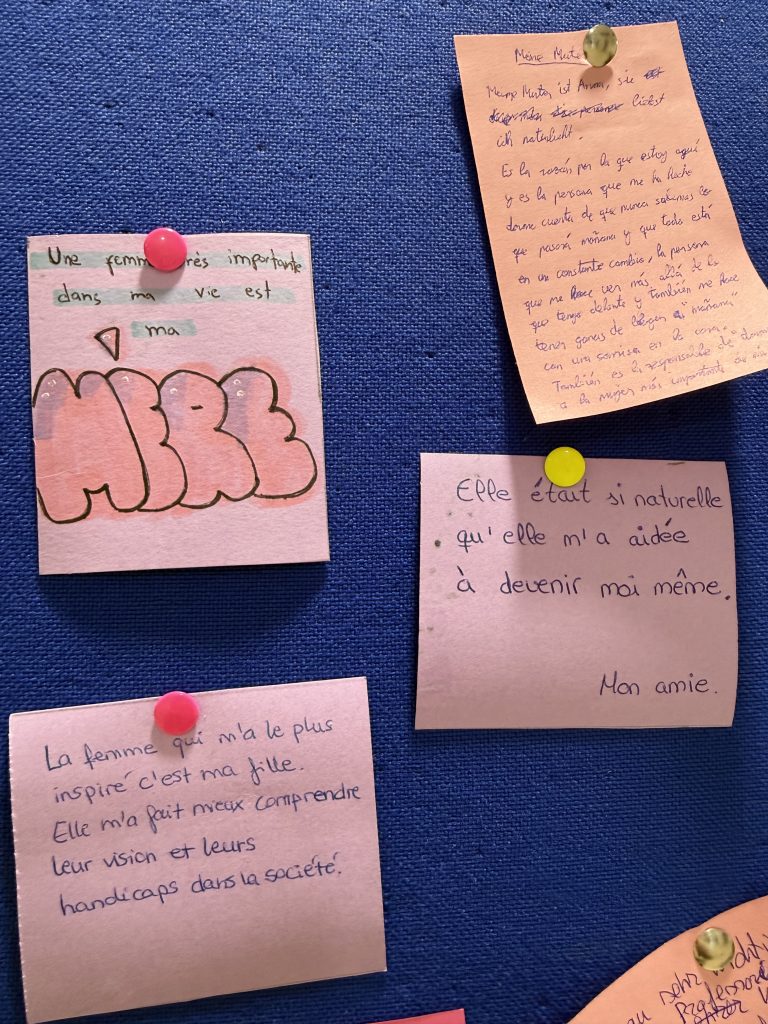 Une femme très importante
dans ma vie est
ma
MÈRE
Meine Mutter
Meine Mutter ist sie
liebst
ich
Es la razón por la que estoy aquí
y es la persona que me ha hecho
darme cuenta de que nunca sabemos lo
que pasará mañana y que todo está
en un constante cambio, la persona
que me hace ver más allá de lo
que tengo delante y también me hace
tener ganas de llegar a "mañana"
con una sonrisa en la cara.
También es la responsable de
a la mujer más importante
Elle était si naturelle
qu'elle m'a aidée
à devenir moi même.
Mon amie.
La femme qui m'a le plus
inspiré c'est ma fille.
Elle m'a fait mieux comprendre
leur vision et leurs
handicaps dans la société.